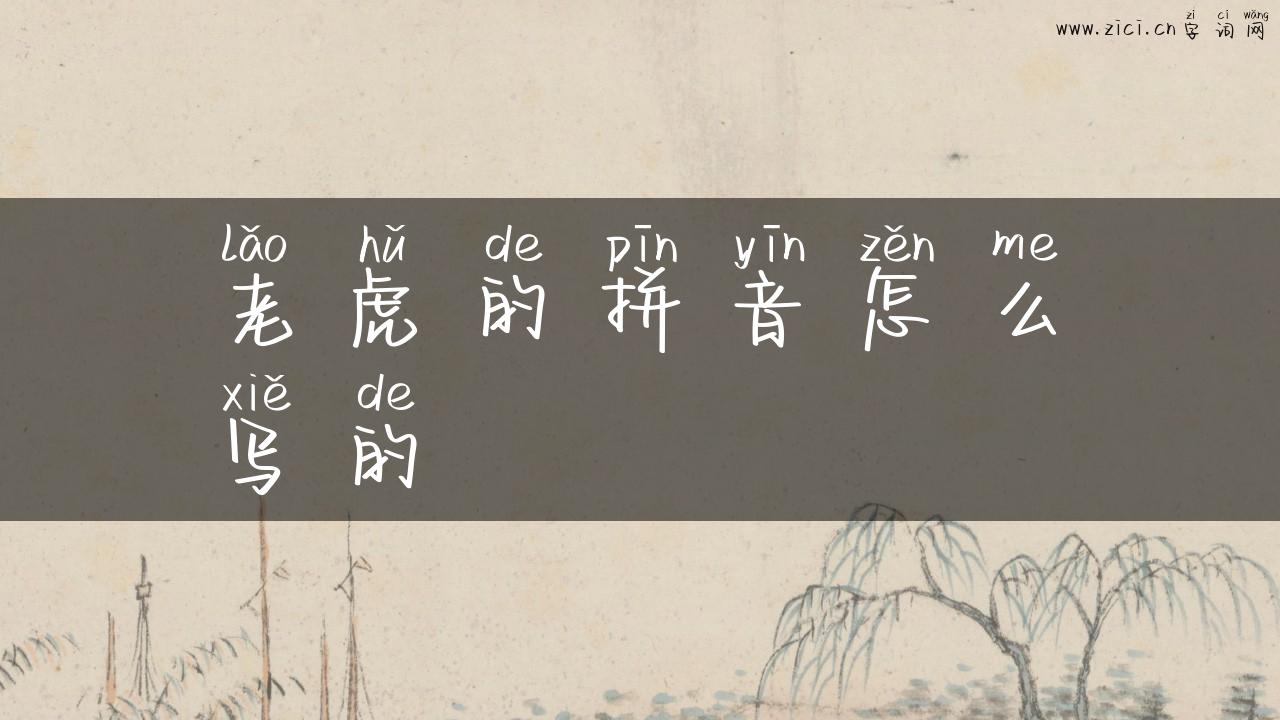 zì cí wǎng
www.zici.cn 字 词 网
lǎo hǔ de pīn yīn zěn me
老 虎 的 拼 音 怎 么
xiě de
写 的